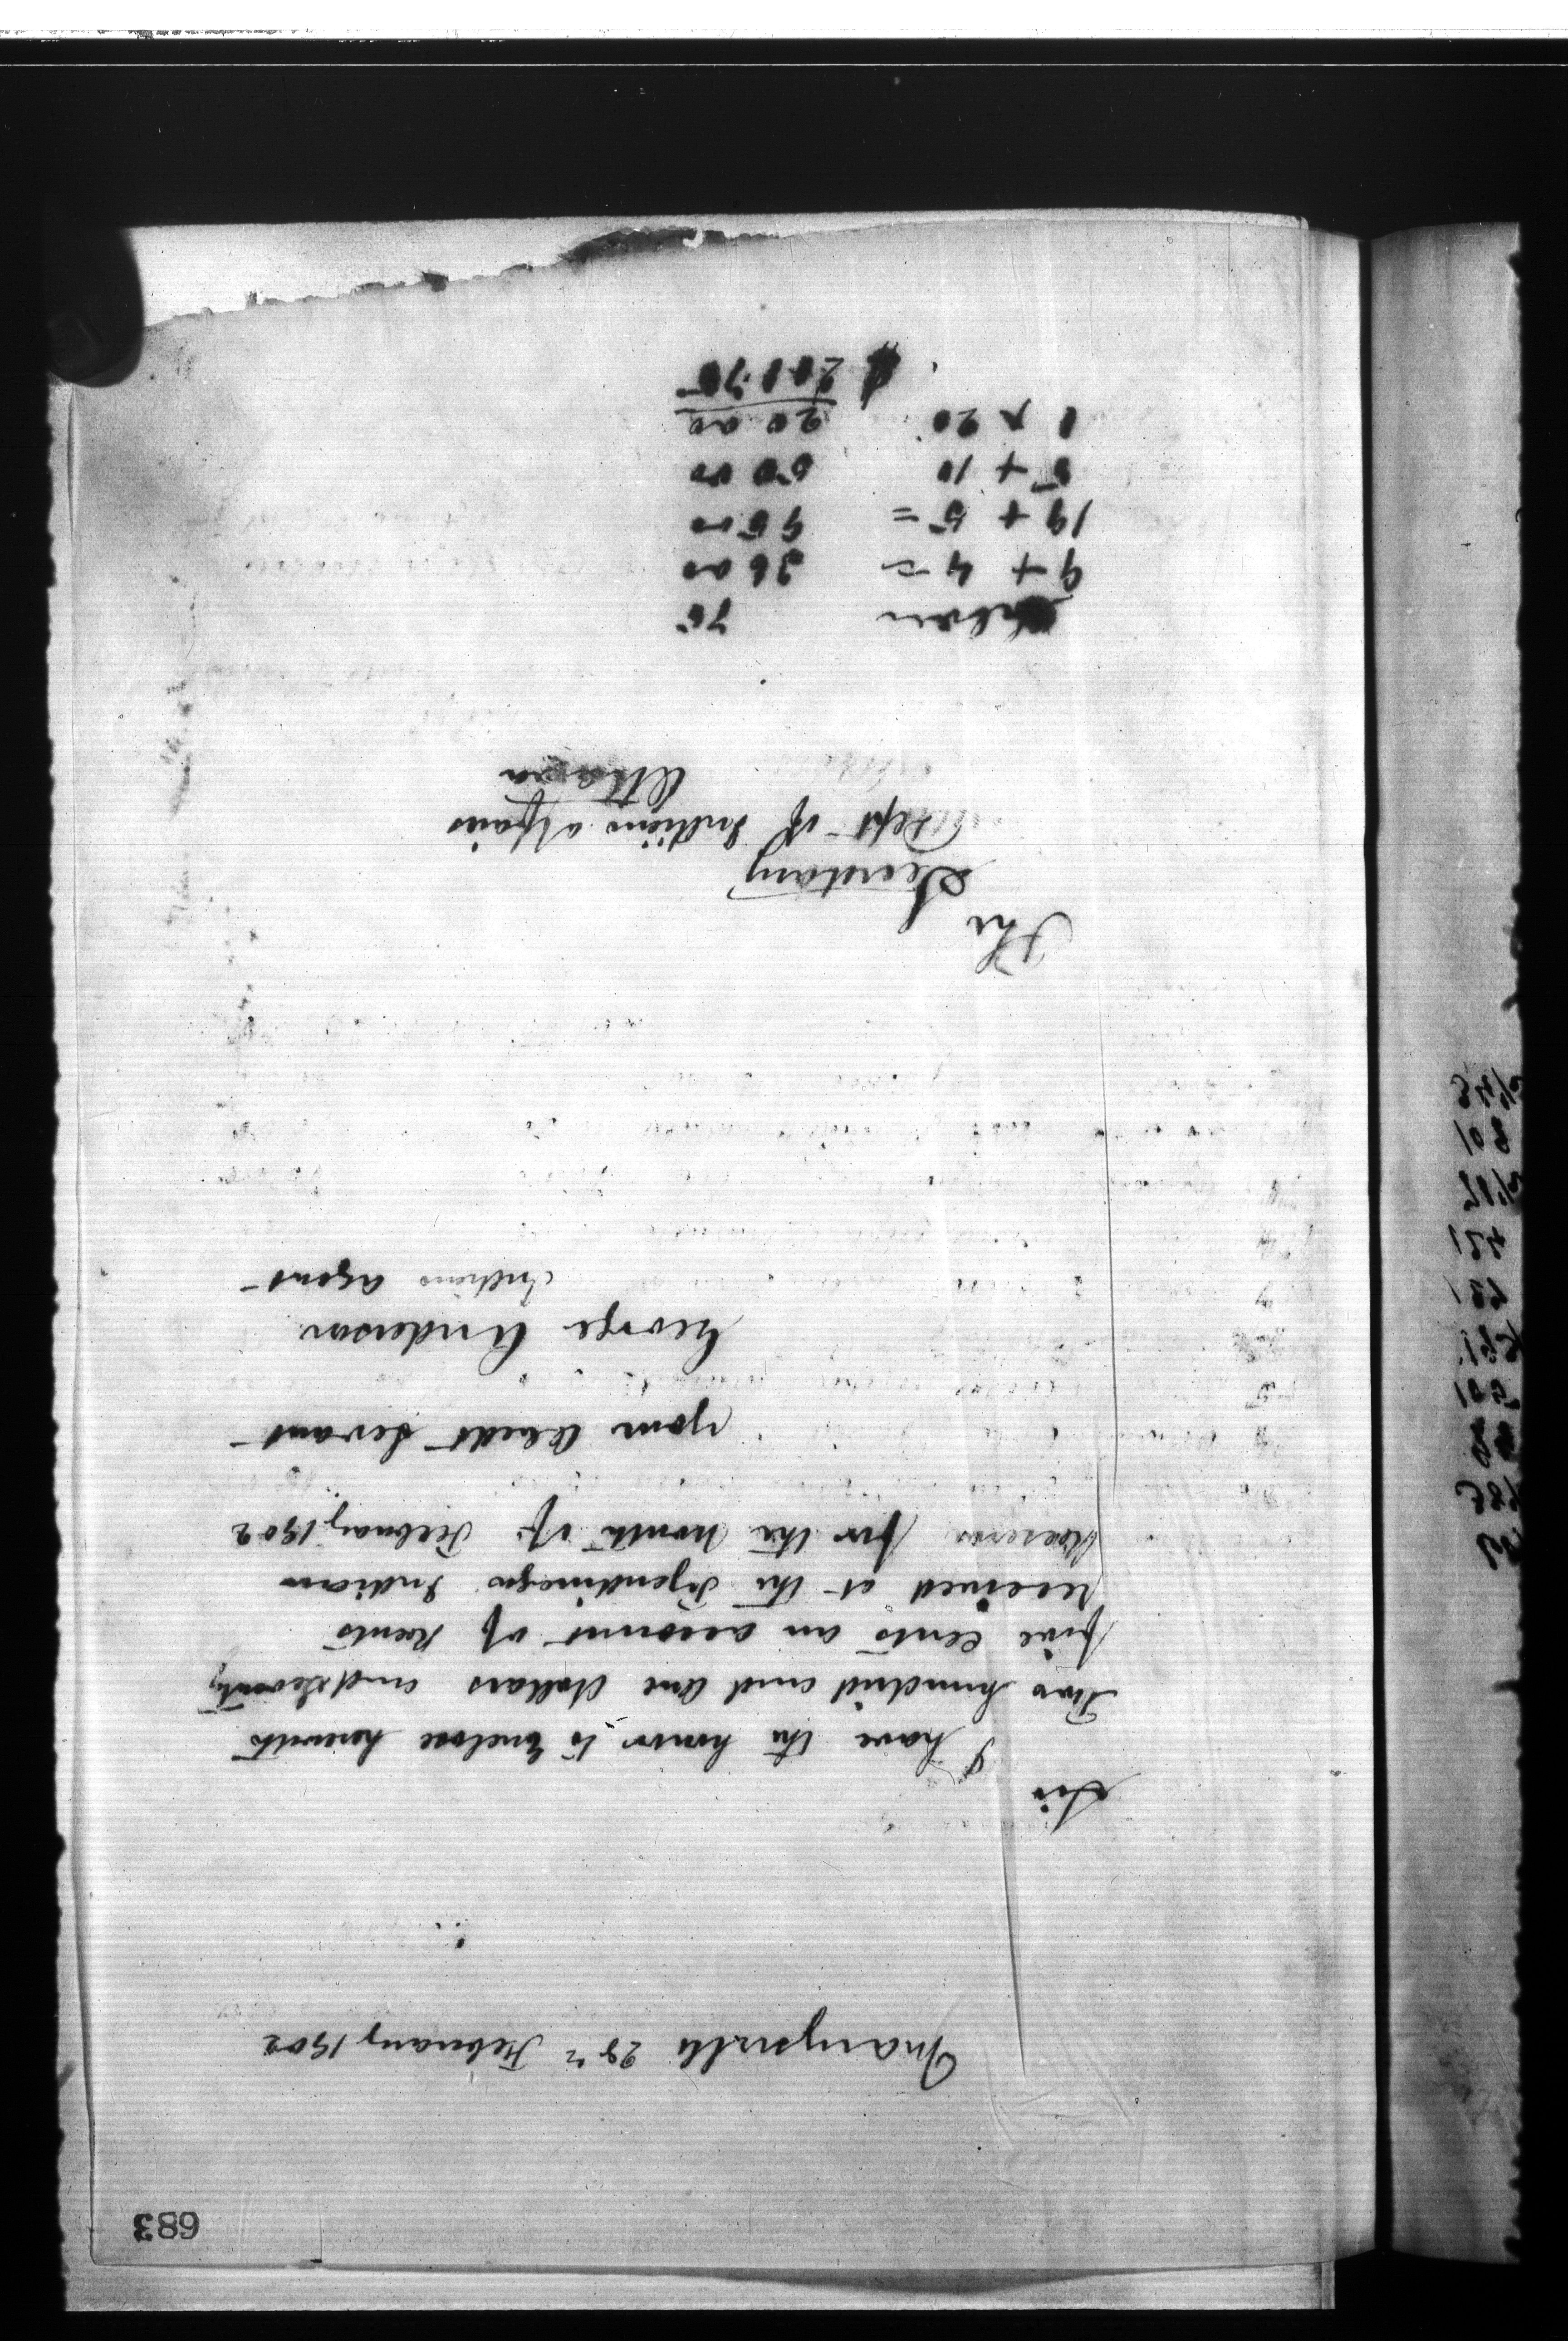 683
Marysville 28th Febuary 1902
Sir
I have the honor to Enclose herewith
Two hundred and One dollars and Seventy
five Cents on account of Rents
received at the Tyendinaga Indian
Reserve for the Month of Febuary 1902
your Obedt Servant
George Anderson
Indian Agent
The
Secretary
Dept of Indian Affairs
Ottawa
Silver 75
9 + 4 = 36 00
19 + 5 = 95 00
5 + 10 50 00
1 x 20 20 00
$ 201.75